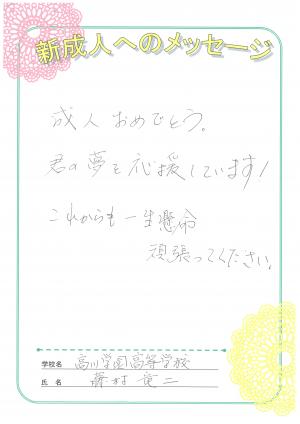 新成人へのメッセージ
成人おめでとう。
君の夢を応援しています!
これからも一生懸命
頑張ってください。
学校名 高川学園高等学校
氏名 藤村竜二